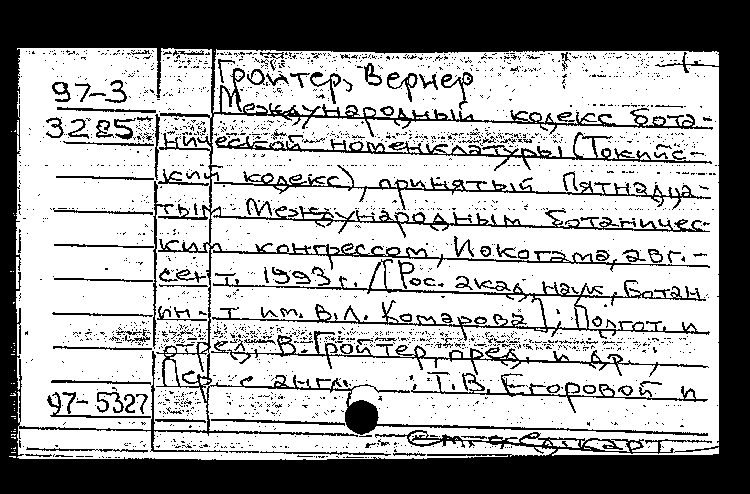 Гройтер, Вернер
97-3
Международный кодекс бота-
3285
нической номенклатуры (Токийс-
кий кодекс), принятый Пятнадца-
тым Международным ботаничес-
ким конгрессом, Иокогама, авг.-
сент. 1993 г. / [Рос. акад. наук, Ботан.
ин-т им. В.Л. Комарова]; Подгот. и
отред. В. Гройтер, пред. и др. ;
Пер. с англ. : Т.В. Егоровой и
97-5327
см. след. карт.